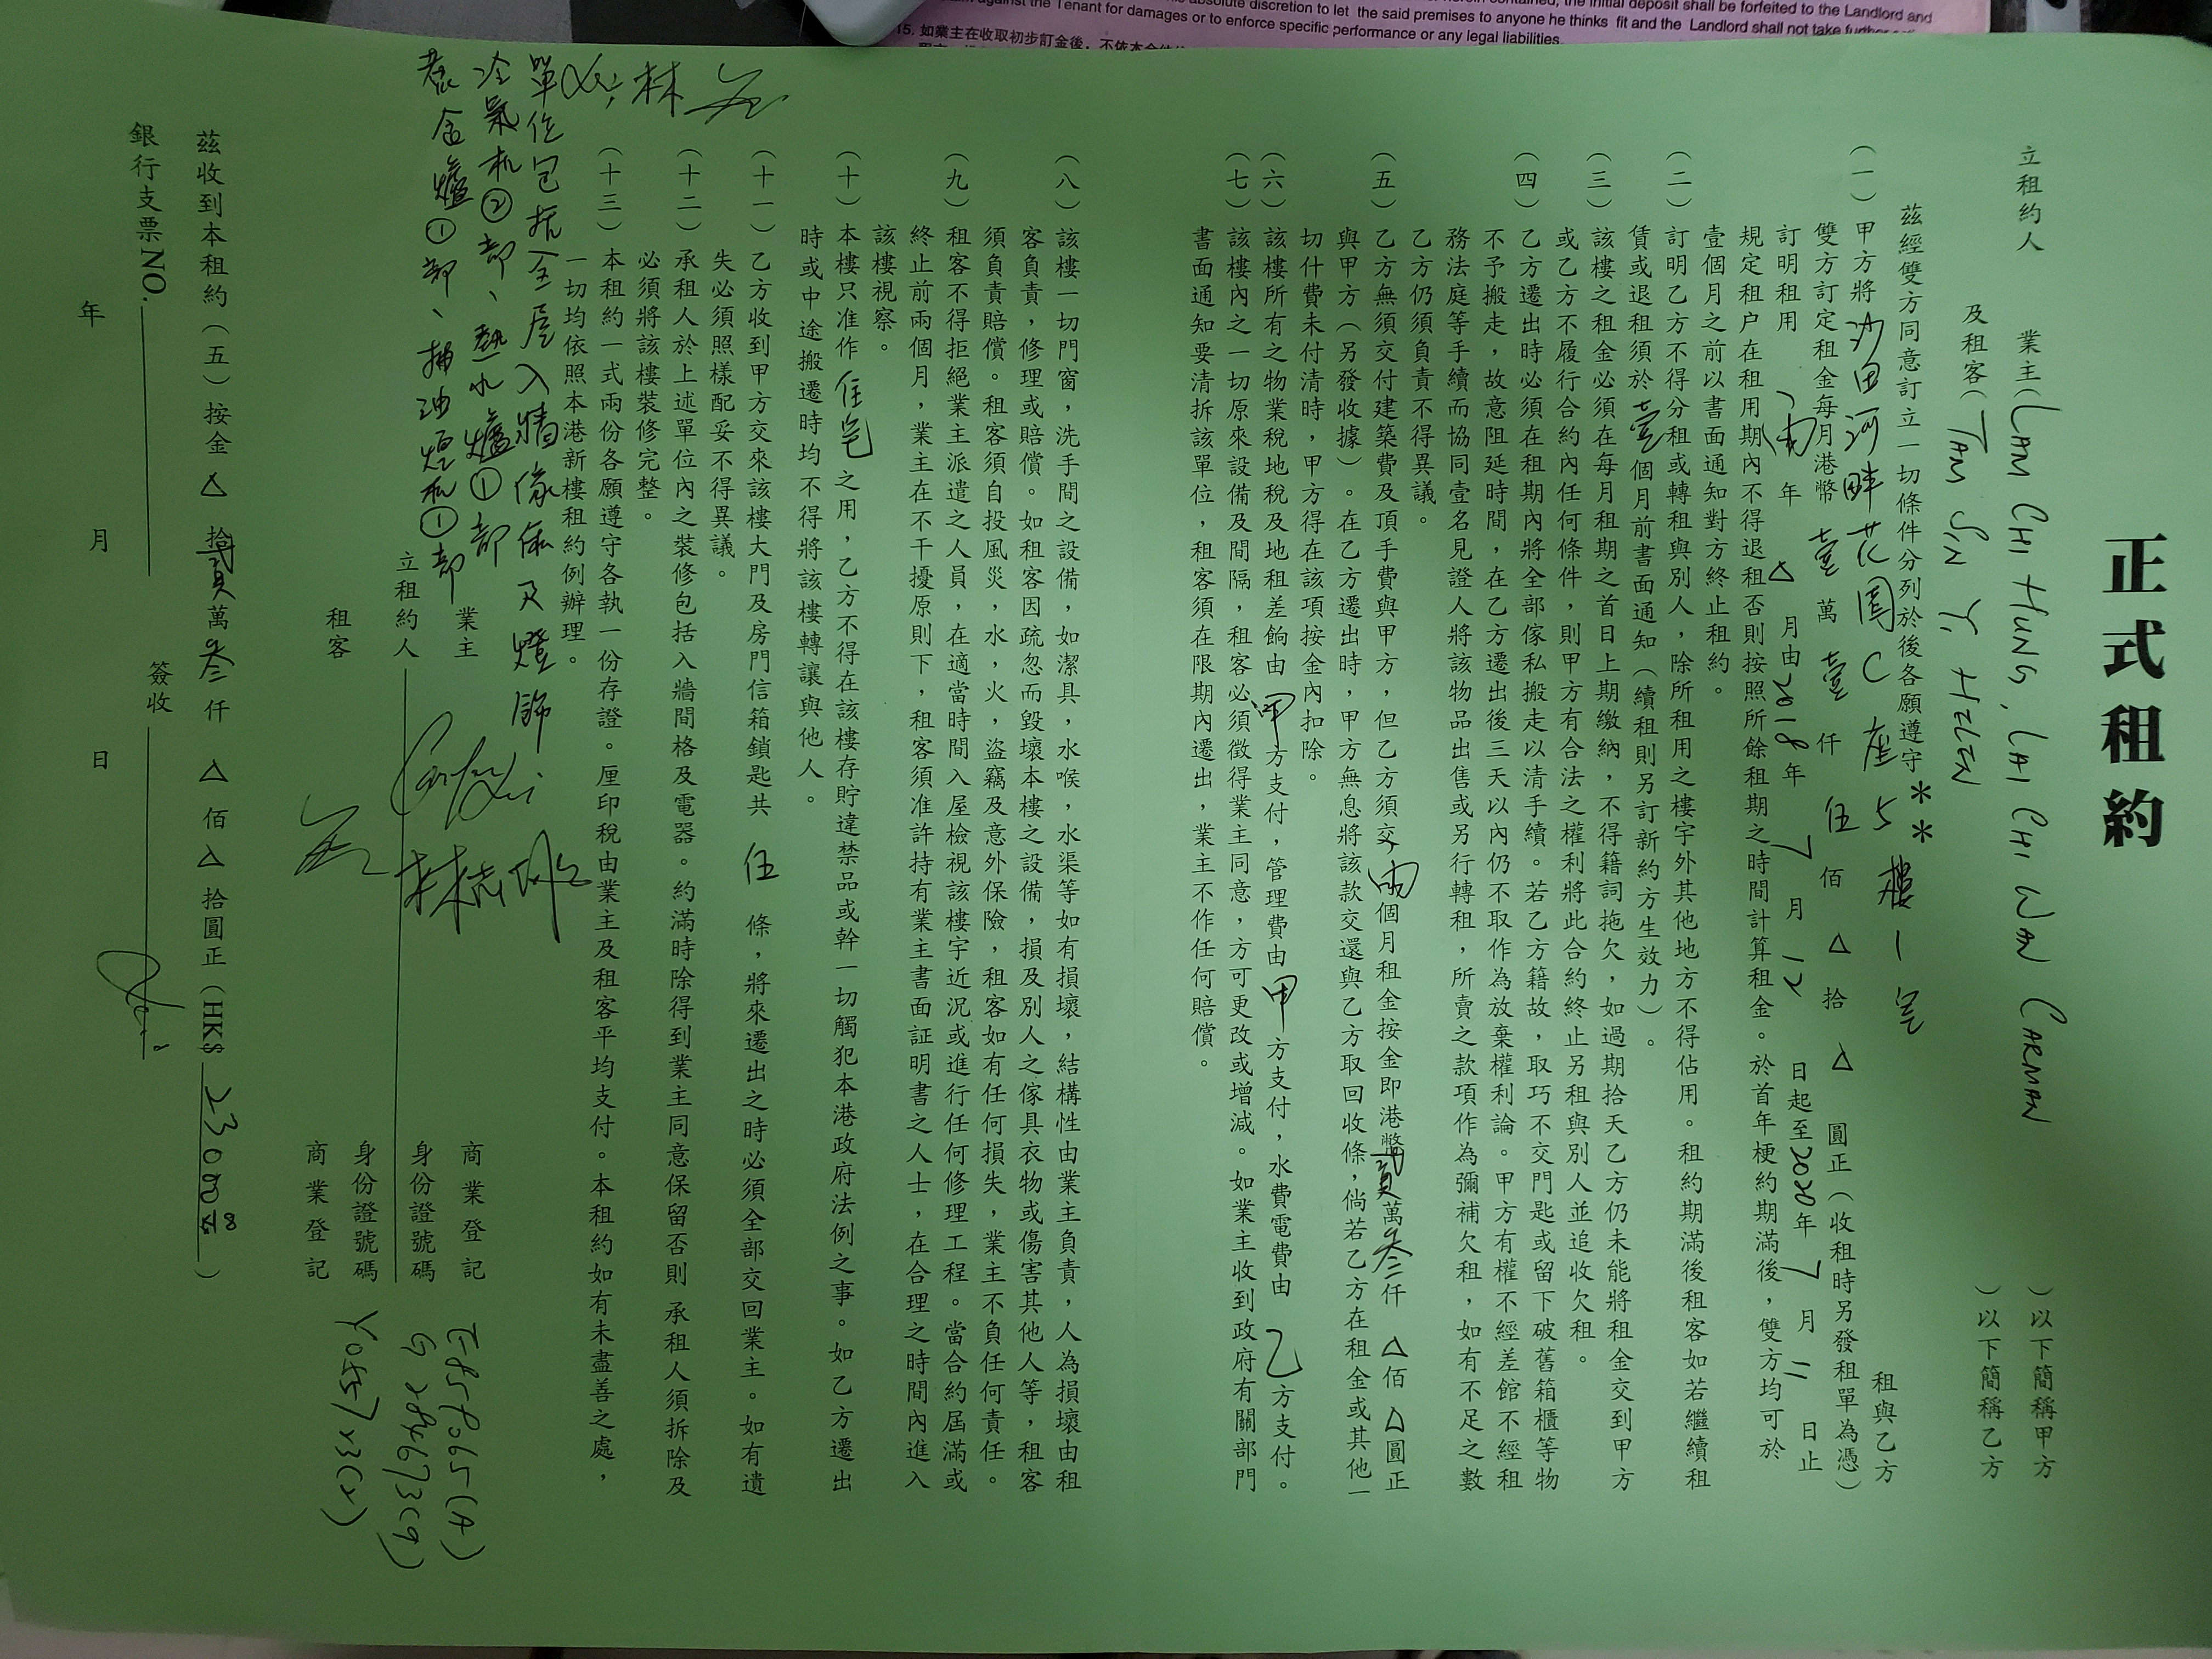 absolute discretion to let the said premises to anyone he thinks fit and the Landlord shall not take further
against the Tenant for damages or to enforce specific performance or any legal liabilities.
15. 如業主在收取初步訂金後，不依本合
正式租約
立租約人 業主（LAM CHI HUNG, LAI CHI WAN CARMAN ）以下簡稱甲方
及租客（TAM SIN Y. HELEN ）以下簡稱乙方
茲經雙方同意訂立一切條件分列於後各願遵守**
（一）甲方將沙田河畔花園C座5樓 租與乙方
雙方訂定租金每月港幣壹萬壹仟伍佰△拾△圓正（收租時另發租單為憑）
訂明租用（兩）年△月由2018年7月12日起至2020年7月11日止
規定租户在租用期內不得退租否則按照所餘租期之時間計算租金。於首年梗約期滿後，雙方均可於
壹個月之前以書面通知對方終止租約。
（二）訂明乙方不得分租或轉租與別人，除所租用之樓宇外其他地方不得佔用。租約期滿後租客如若繼續租
賃或退租須於壹個月前書面通知（續租則另訂新約方生效力）。
（三）該樓之租金必須在每月租期之首日上期繳納，不得藉詞拖欠，如過期拾天乙方仍未能將租金交到甲方
或乙方不履行合約內任何條件，則甲方有合法之權利將此合約終止另租與別人並追收欠租。
（四）乙方遷出時必須在租期內將全部傢私搬走以清手續。若乙方藉故，取巧不交門匙或留下破舊箱櫃等物
不予搬走，故意阻延時間，在乙方遷出後三天以內仍不取作為放棄權利論。甲方有權不經差館不經租
務法庭等手續而協同壹名見證人將該物品出售或另行轉租，所賣之款項作為彌補欠租，如有不足之數
乙方仍須負責不得異議。
（五）乙方無須交付建築費及頂手費與甲方，但乙方須交兩個月租金按金即港幣貳萬叁仟△佰△圓正
與甲方（另發收據）。在乙方遷出時，甲方無息將該款交還與乙方取回收條，倘若乙方在租金或其他一
切什費未付清時，甲方得在該項按金內扣除。
（六）該樓所有之物業稅地稅及地租差餉由甲方支付，管理費由甲方支付，水費電費由乙方支付。
（七）該樓內之一切原來設備及間隔，租客必須徵得業主同意，方可更改或增減。如業主收到政府有關部門
書面通知要清拆該單位，租客須在限期內遷出，業主不作任何賠償。
（八）該樓一切門窗，洗手間之設備，如潔具，水喉，水渠等如有損壞，結構性由業主負責，人為損壞由租
客負責，修理或賠償。如租客因疏忽而毀壞本樓之設備，損及別人之傢具衣物或傷害其他人等，租客
須負責賠償。租客須自投風災，水，火，盜竊及意外保險，租客如有任何損失，業主不負任何責任。
（九）租客不得拒絕業主派遣之人員，在適當時間入屋檢視該樓宇近況或進行任何修理工程。當合約屆滿或
終止前兩個月，業主在不干擾原則下，租客須准許持有業主書面証明書之人士，在合理之時間內進入
該樓視察。
（十）本樓只准作住宅之用，乙方不得在該樓存貯違禁品或幹一切觸犯本港政府法例之事。如乙方遷出
時或中途搬遷時均不得將該樓轉讓與他人。
（十一）乙方收到甲方交來該樓大門及房門信箱鎖匙共伍條，將來遷出之時必須全部交回業主。如有遺
失必須照樣配妥不得異議。
（十二）承租人於上述單位內之裝修包括入牆間格及電器。約滿時除得到業主同意保留否則 承租人須拆除及
必須將該樓裝修完整。
（十三）本租約一式兩份各願遵守各執一份存證。厘印稅由業主及租客平均支付。本租約如有未盡善之處，
一切均依照本港新樓租約例辦理。
單位包括全屋入牆傢俬及燈飾
冷氣机②部、熱水爐①部
煮食爐①部、抽油煙机①部
業主 商業登記
立租約人 林志雄 身份證號碼
租客 身份證號碼
商業登記
茲收到本租約（五）按金△拾貳萬叁仟△佰△拾圓正（HK$ 23000 ）
銀行支票NO. 簽收
年 月 日